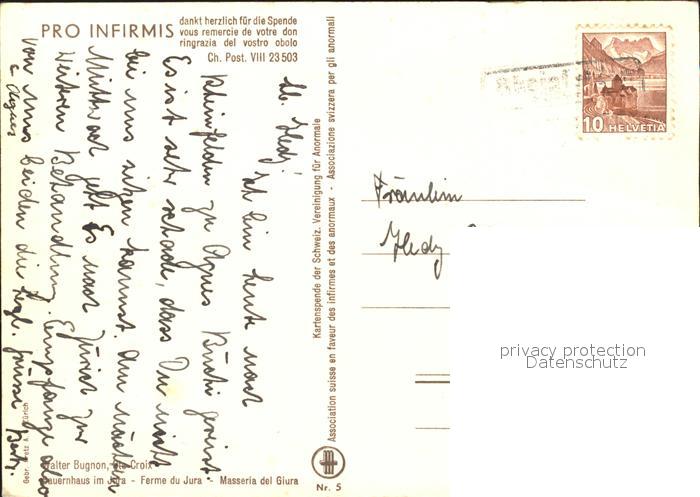 PRO INFIRMIS
dankt herzlich für die Spende
vous remercie de votre don
ringrazia del vostro obolo
Ch. Post. VIII 23 503
Lb. Hedy!
Ich bin heute nach
Rheinfelden zu Agnes Küchi gereist.
Es ist sehr schade, dass Du nicht
bei uns sitzen kannst. Am nächsten
Mittwoch geht Es nach Zürich zur
weiteren Behandlung. Empfange also
von uns beiden die herzl. Grüsse
& Agnes
Kartenspende der Schweiz. Vereinigung für Anormale
Association suisse en faveur des infirmes et des anormaux - Associazione svizzera per gli anormali
10 HELVETIA
Fräulein
Hedy
privacy protection
Datenschutz
Walter Bugnon, Ste-Croix
Bauernhaus im Jura - Ferme du Jura - Masseria del Giura
Nr. 5
Zürich